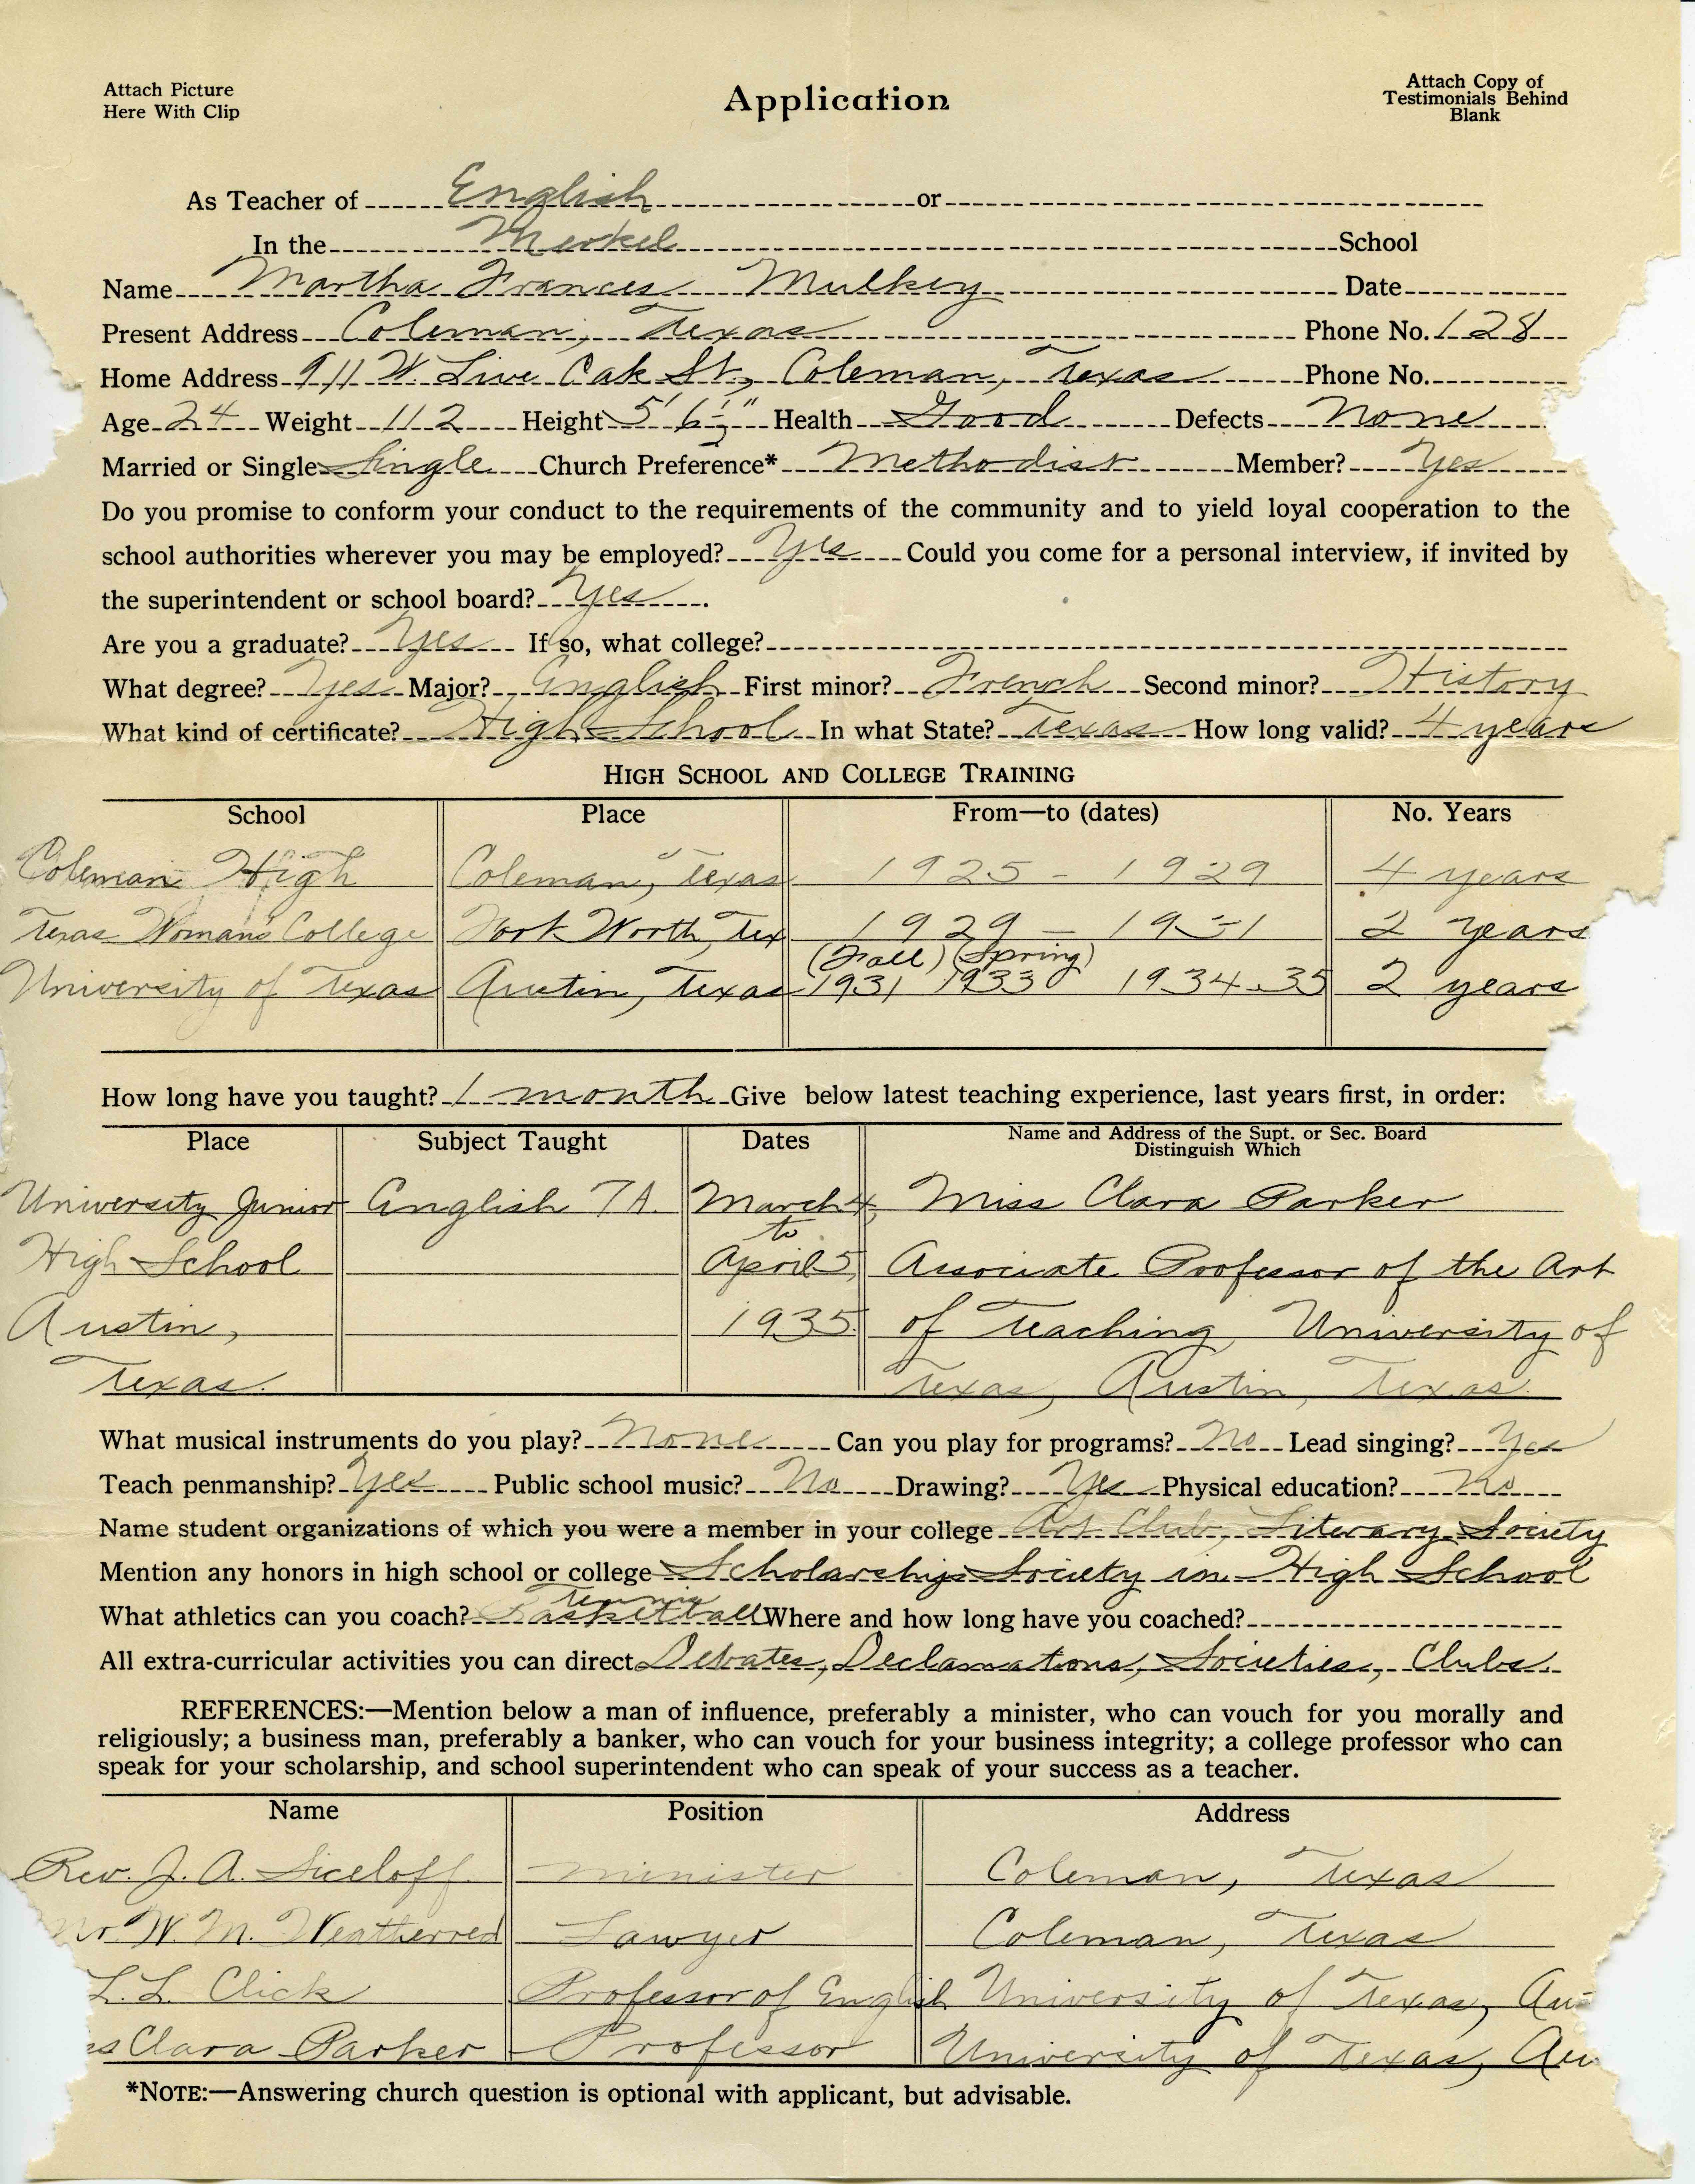 Attach Picture
Here With Clip
Application
Attach Copy of
Testimonials Behind
Blank
As Teacher of English or
In the Merkel School
Name Martha Frances Mulkey Date
Present Address Coleman, Texas Phone No. 128
Home Address 911 W. Live Oak St., Coleman, Texas Phone No.
Age 24 Weight 112 Height 5' 6½" Health Good Defects None
Married or Single Single Church Preference* Methodist Member? Yes
Do you promise to conform your conduct to the requirements of the community and to yield loyal cooperation to the
school authorities wherever you may be employed? Yes Could you come for a personal interview, if invited by
the superintendent or school board? Yes.
Are you a graduate? Yes If so, what college?
What degree? Yes Major? English First minor? French Second minor? History
What kind of certificate? High School In what State? Texas How long valid? 4 years
HIGH SCHOOL AND COLLEGE TRAINING
School Place From—to (dates) No. Years
Coleman High Coleman, Texas 1925 - 1929 4 years
Texas Woman's College Fort Worth, Tex 1929 - 1931 2 years
(Fall) (Spring)
University of Texas Austin, Texas 1931 1933 1934-35 2 years
How long have you taught? 1 month Give below latest teaching experience, last years first, in order:
Place Subject Taught Dates Name and Address of the Supt. or Sec. Board
Distinguish Which
University Junior English 7A. March 4, Miss Clara Parker
to
High School April 5, Associate Professor of the Art
Austin, 1935. of Teaching, University of
Texas. Texas, Austin, Texas.
What musical instruments do you play? None Can you play for programs? No Lead singing? Yes
Teach penmanship? Yes Public school music? No Drawing? Yes Physical education? No
Name student organizations of which you were a member in your college Art Club, Literary Society
Mention any honors in high school or college Scholarship Society in High School
Tennis
What athletics can you coach? Basketball Where and how long have you coached?
All extra-curricular activities you can direct Debates, Declamations, Societies, Clubs.
REFERENCES:—Mention below a man of influence, preferably a minister, who can vouch for you morally and
religiously; a business man, preferably a banker, who can vouch for your business integrity; a college professor who can
speak for your scholarship, and school superintendent who can speak of your success as a teacher.
Name Position Address
Rev. J. A. Siceloff Minister Coleman, Texas
Mr. W. M. Weatherred Lawyer Coleman, Texas
L. L. Click Professor of English University of Texas, Au
ss Clara Parker Professor University of Texas, Au
*NOTE:—Answering church question is optional with applicant, but advisable.